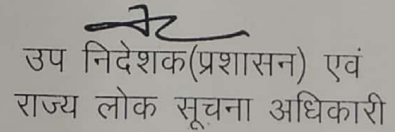 उप निदेशक(प्रशासन) एवं
राज्य लोक सूचना अधिकारी